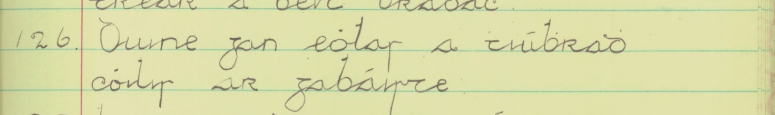 126. Duine gan eólas a tiúbrad
cóilis ar gabáiste